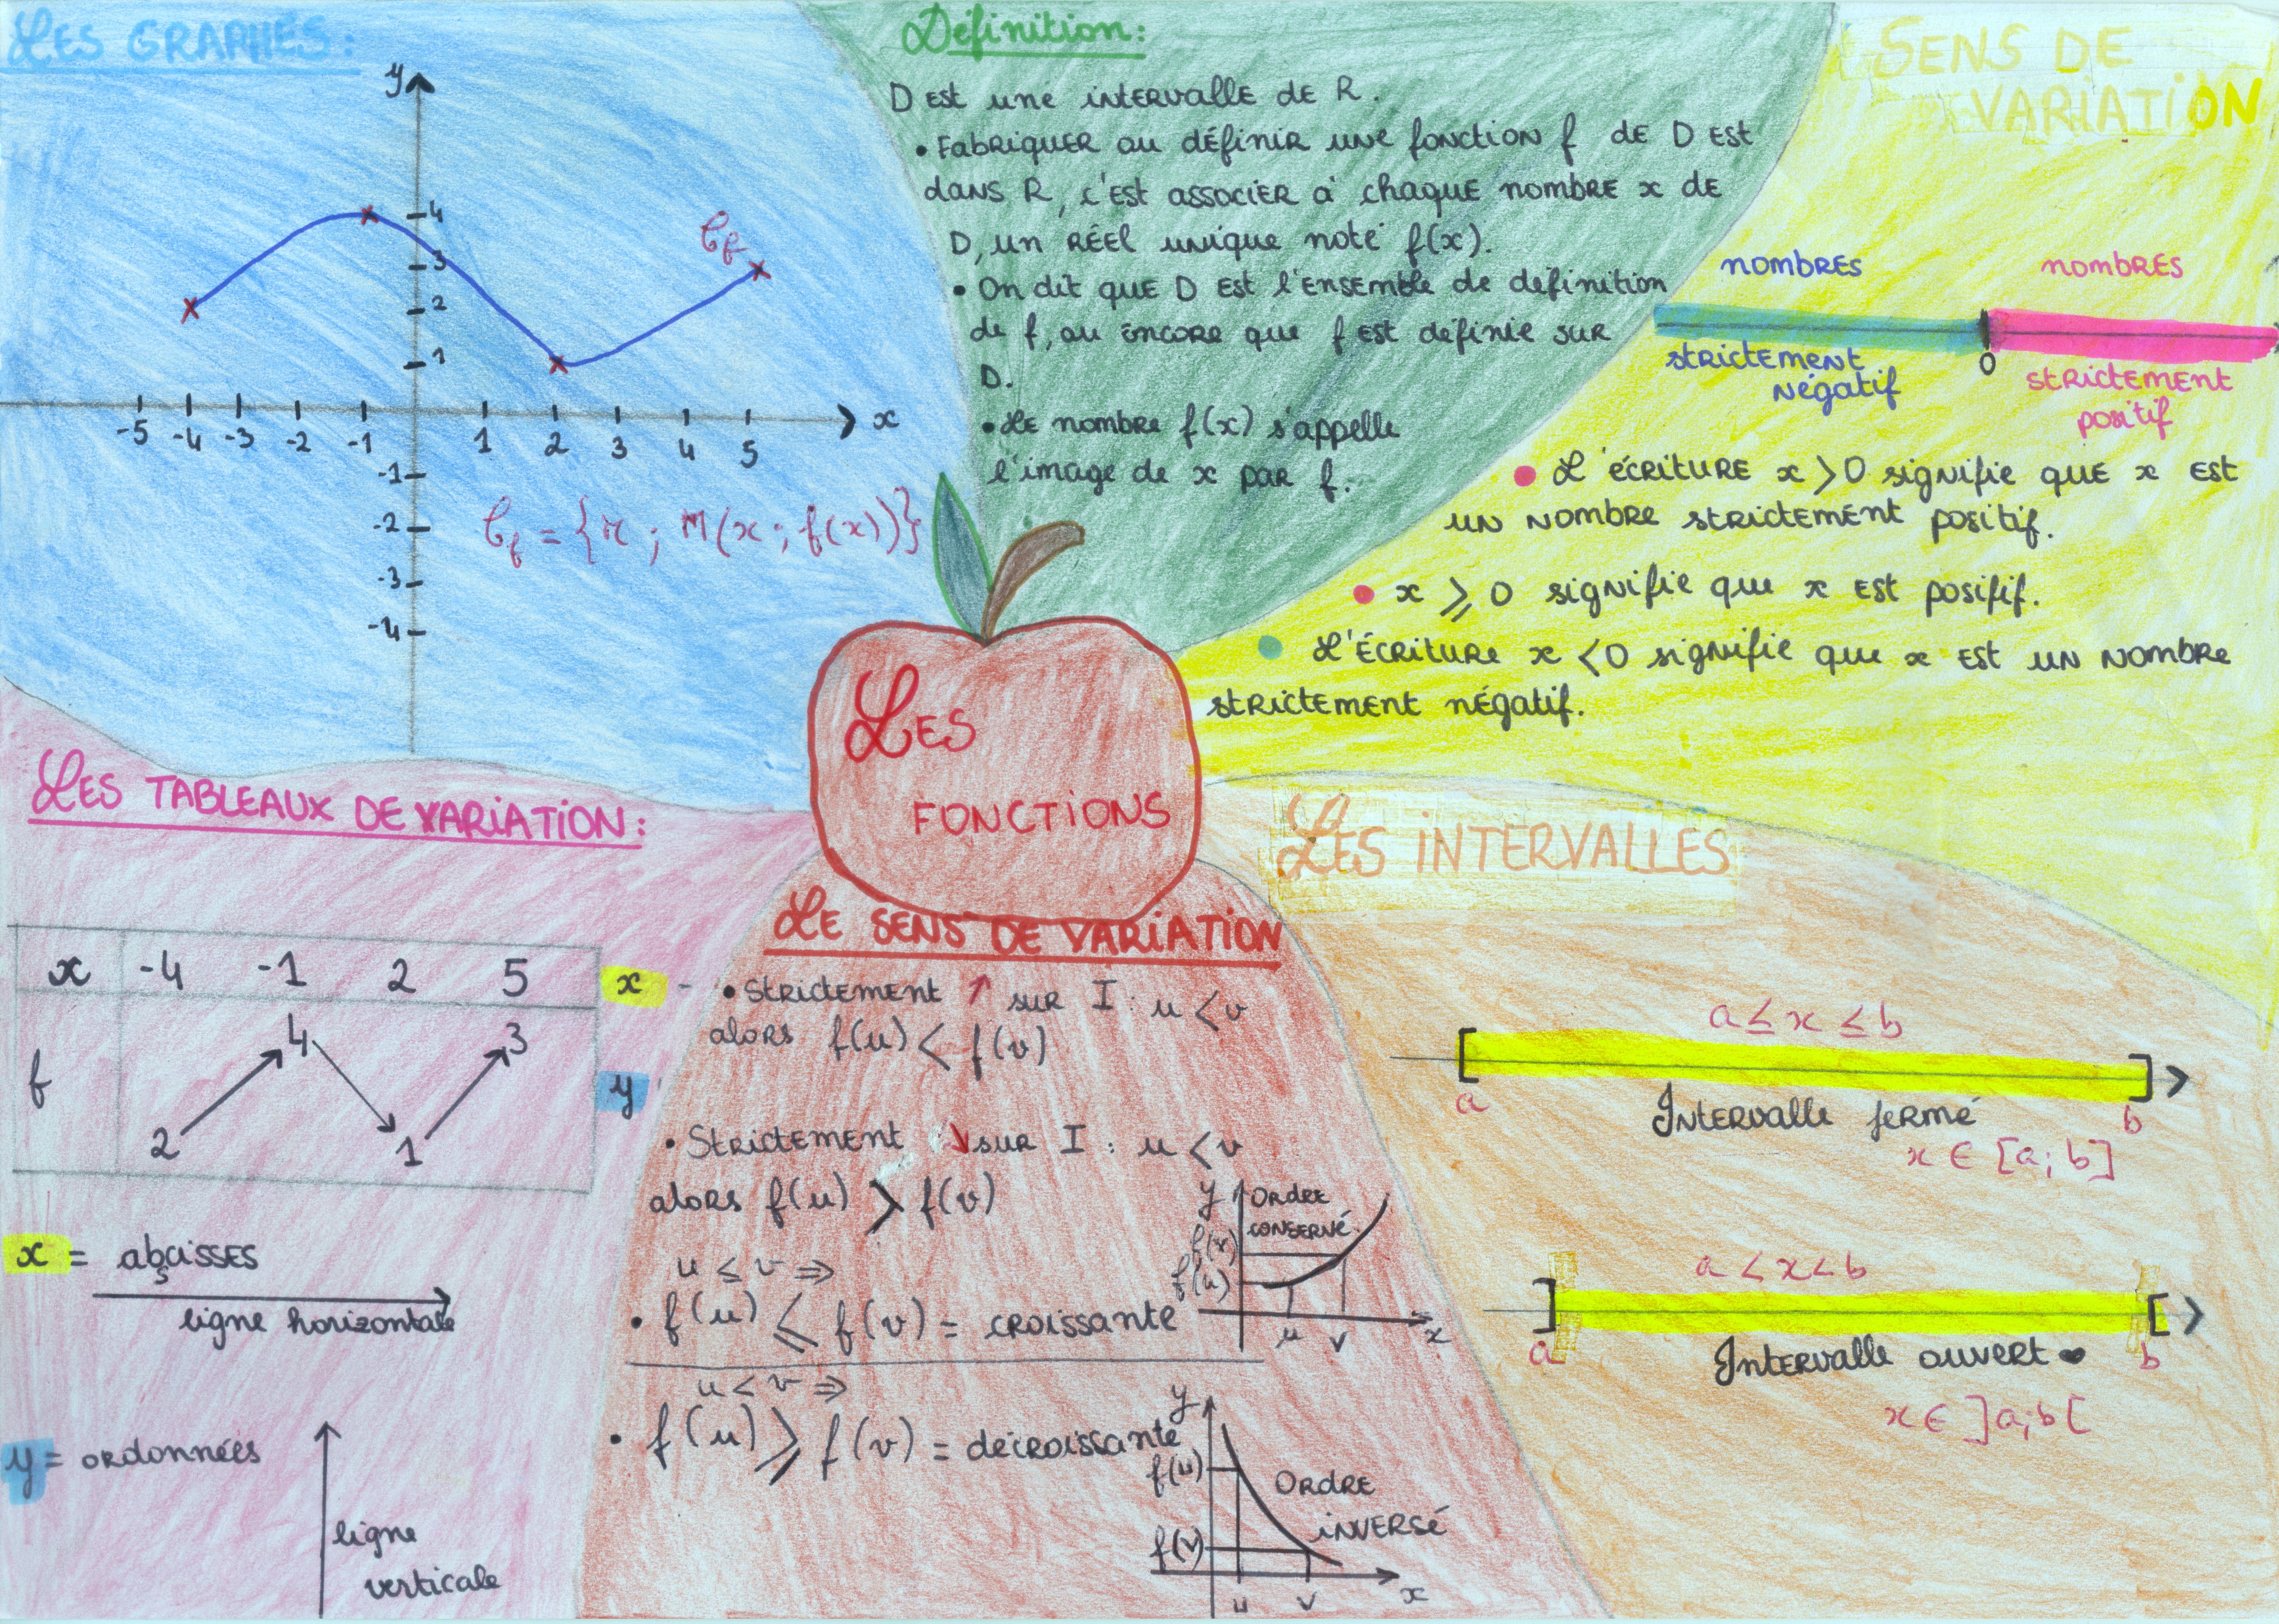 LES GRAPHES:
y
4
3
2
1
-5 -4 -3 -2 -1 1 2 3 4 5
x
-1
-2
-3
-4
Cf
Cf = {M ; M(x ; f(x))}
Définition:
D EST une intervalle de R.
• Fabriquer ou définir une fonction f de D EST
dans R, c'est associer à chaque nombre x de
D, un réel unique noté f(x).
• On dit que D est l'ensemble de définition
de f, ou encore que f est définie sur
D.
• Le nombre f(x) s'appelle
l'image de x par f.
SENS DE
VARIATION
nombres nombres
strictement
négatif
0
strictement
positif
• L'écriture x > 0 signifie que x est
un nombre strictement positif.
• x ⩾ 0 signifie que x est posifif.
• L'écriture x < 0 signifie que x est un nombre
strictement négatif.
LES
FONCTIONS
LES TABLEAUX DE VARIATION:
x -4 -1 2 5 x
f 2 4 1 3 y
x = abcisses
s
ligne horizontale
y = ordonnées
ligne
verticale
LE SENS DE VARIATION
• Strictement ↗ sur I : u < v
alors f(u) < f(v)
• Strictement ↘ sur I : u < v
alors f(u) > f(v)
u ≤ v ⇒
• f(u) ⩽ f(v) = croissante
y
Ordre
conservé.
f(v)
f(u)
u v x
u < v ⇒
• f(u) ⩾ f(v) = décroissante
y
f(u)
Ordre
inversé
f(v)
u v x
LES INTERVALLES
a ≤ x ≤ b
[ ]
a b
Intervalle fermé
x ∈ [a; b]
a < x < b
] [
a b
Intervalle ouvert
x ∈ ]a;b[